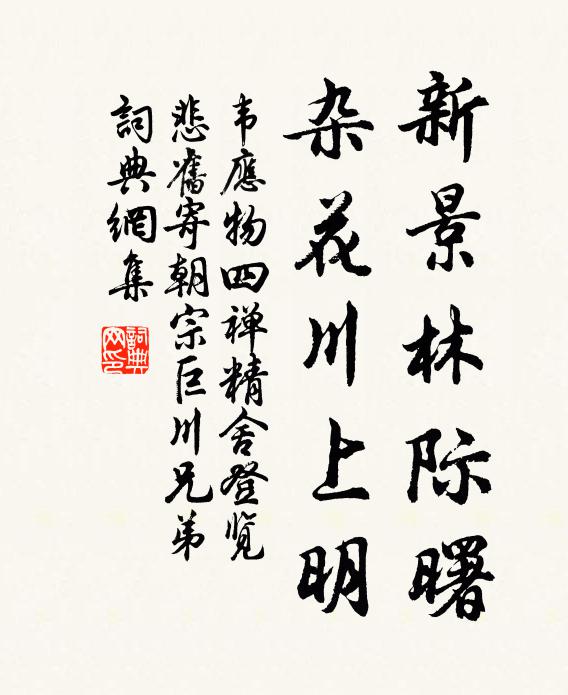 新景林际曙
杂花川上明
韦應物四禅精舍登览
悲舊寄朝宗巨川兄弟
詞典網集
詞典網印